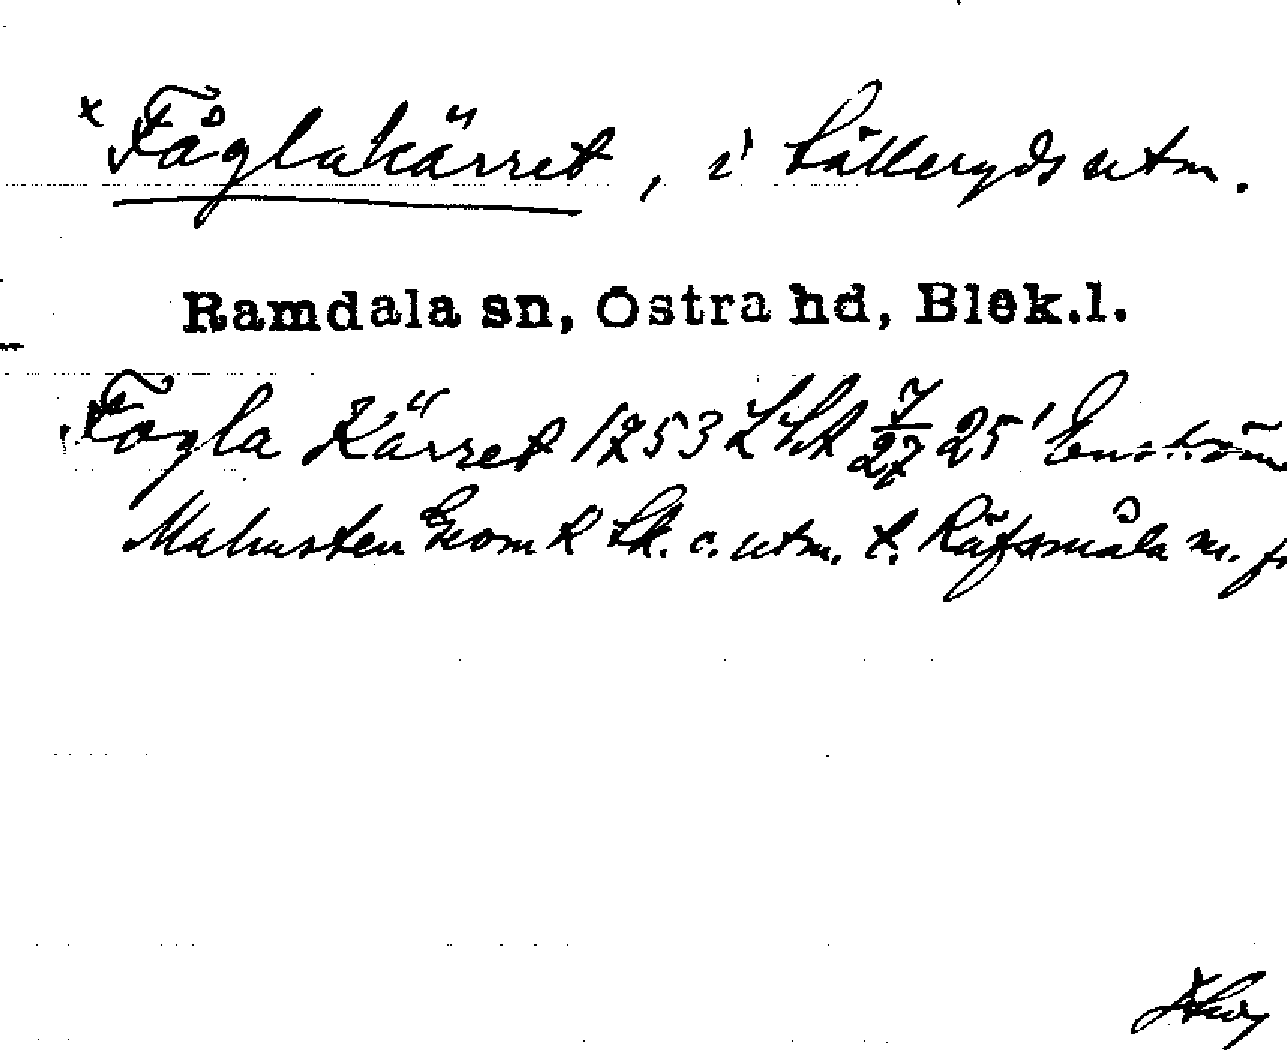 * Fåglakärret, i Sälleryds utm.
Ramdala sn, Östra hd, Blek.l.
Fogla Kärret 1753 LSA 7/27 25
Malmsten Geom k Sk. o. utm. t. Räfsmåla m. fl